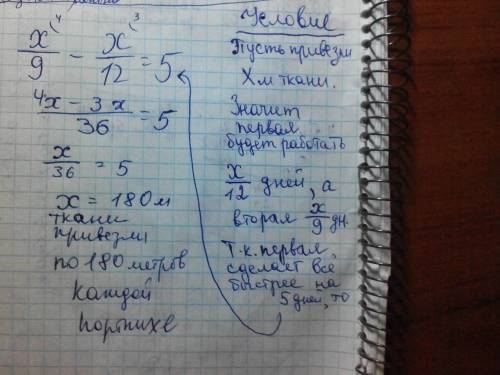 x⁽⁴/9 − x⁽³/12 = 5
4x − 3x/36 = 5
x/36 = 5
x = 180 м
ткани
привезли
по 180 метров
каждой
портнихе
Условие
Пусть привезли
Xм ткани.
Значит
первая
будет работать
x/12 дней, а
вторая x/9 дн.
Т.к. первая
сделает всё
быстрее на
5 дней, то